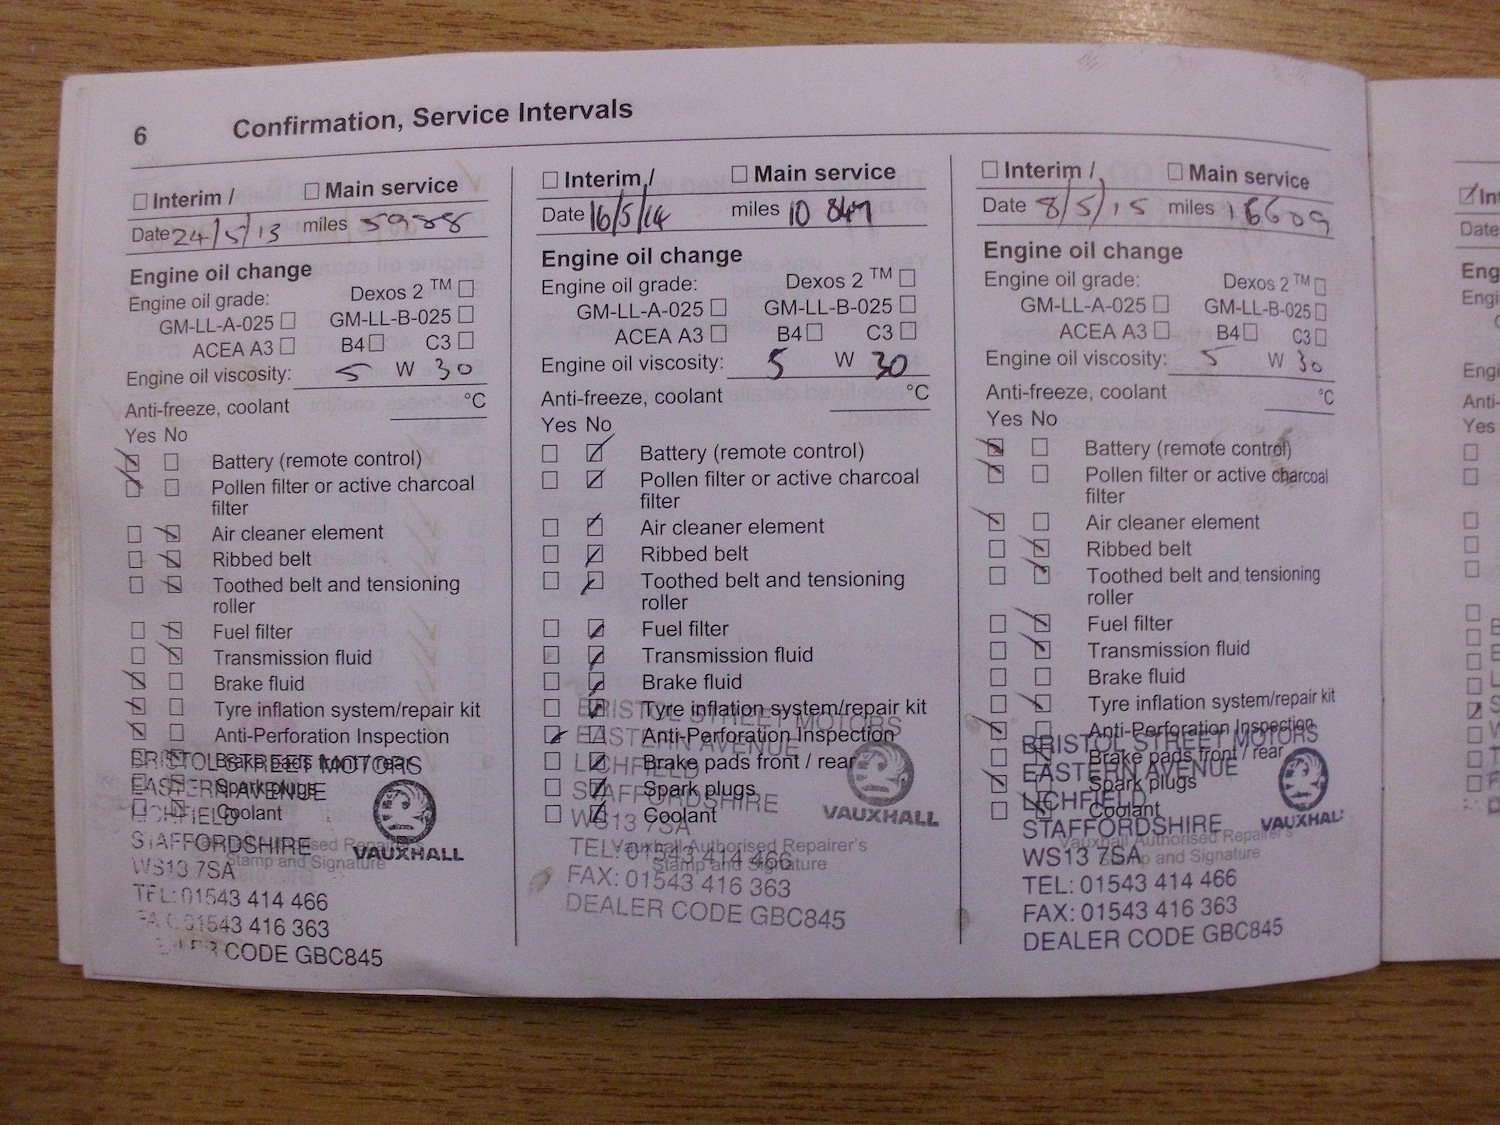 6 Confirmation, Service Intervals
☐ Interim / ☐ Main service
Date 24/5/13 miles 5988
Engine oil change
Engine oil grade: Dexos 2 ™ ☐
GM-LL-A-025 ☐ GM-LL-B-025 ☐
ACEA A3 ☐ B4 ☐ C3 ☐
Engine oil viscosity: 5 W 30
Anti-freeze, coolant °C
Yes No
Battery (remote control)
Pollen filter or active charcoal
filter
Air cleaner element
Ribbed belt
Toothed belt and tensioning
roller
Fuel filter
Transmission fluid
Brake fluid
Tyre inflation system/repair kit
Anti-Perforation Inspection
Brake pads front / rear
Spark plugs
Coolant
Vauxhall Authorised Repairer's
Stamp and Signature
BRISTOL STREET MOTORS
EASTERN AVENUE
LICHFIELD
STAFFORDSHIRE
WS13 7SA
TEL: 01543 414 466
FAX: 01543 416 363
DEALER CODE GBC845
VAUXHALL
☐ Interim / ☐ Main service
Date 16/5/14 miles 10 847
Engine oil change
Engine oil grade: Dexos 2 ™ ☐
GM-LL-A-025 ☐ GM-LL-B-025 ☐
ACEA A3 ☐ B4 ☐ C3 ☐
Engine oil viscosity: 5 W 30
Anti-freeze, coolant °C
Yes No
Battery (remote control)
Pollen filter or active charcoal
filter
Air cleaner element
Ribbed belt
Toothed belt and tensioning
roller
Fuel filter
Transmission fluid
Brake fluid
Tyre inflation system/repair kit
Anti-Perforation Inspection
Brake pads front / rear
Spark plugs
Coolant
Vauxhall Authorised Repairer's
Stamp and Signature
BRISTOL STREET MOTORS
EASTERN AVENUE
LICHFIELD
STAFFORDSHIRE
WS13 7SA
TEL: 01543 414 466
FAX: 01543 416 363
DEALER CODE GBC845
VAUXHALL
☐ Interim / ☐ Main service
Date 8/5/15 miles 16609
Engine oil change
Engine oil grade: Dexos 2 ™ ☐
GM-LL-A-025 ☐ GM-LL-B-025 ☐
ACEA A3 ☐ B4 ☐ C3 ☐
Engine oil viscosity: 5 W 30
Anti-freeze, coolant °C
Yes No
Battery (remote control)
Pollen filter or active charcoal
filter
Air cleaner element
Ribbed belt
Toothed belt and tensioning
roller
Fuel filter
Transmission fluid
Brake fluid
Tyre inflation system/repair kit
Anti-Perforation Inspection
Brake pads front / rear
Spark plugs
Coolant
Vauxhall Authorised Repairer's
Stamp and Signature
BRISTOL STREET MOTORS
EASTERN AVENUE
LICHFIELD
STAFFORDSHIRE
WS13 7SA
TEL: 01543 414 466
FAX: 01543 416 363
DEALER CODE GBC845
VAUXHAL
Int
Date
Eng
Engi
Engi
Anti-
Yes